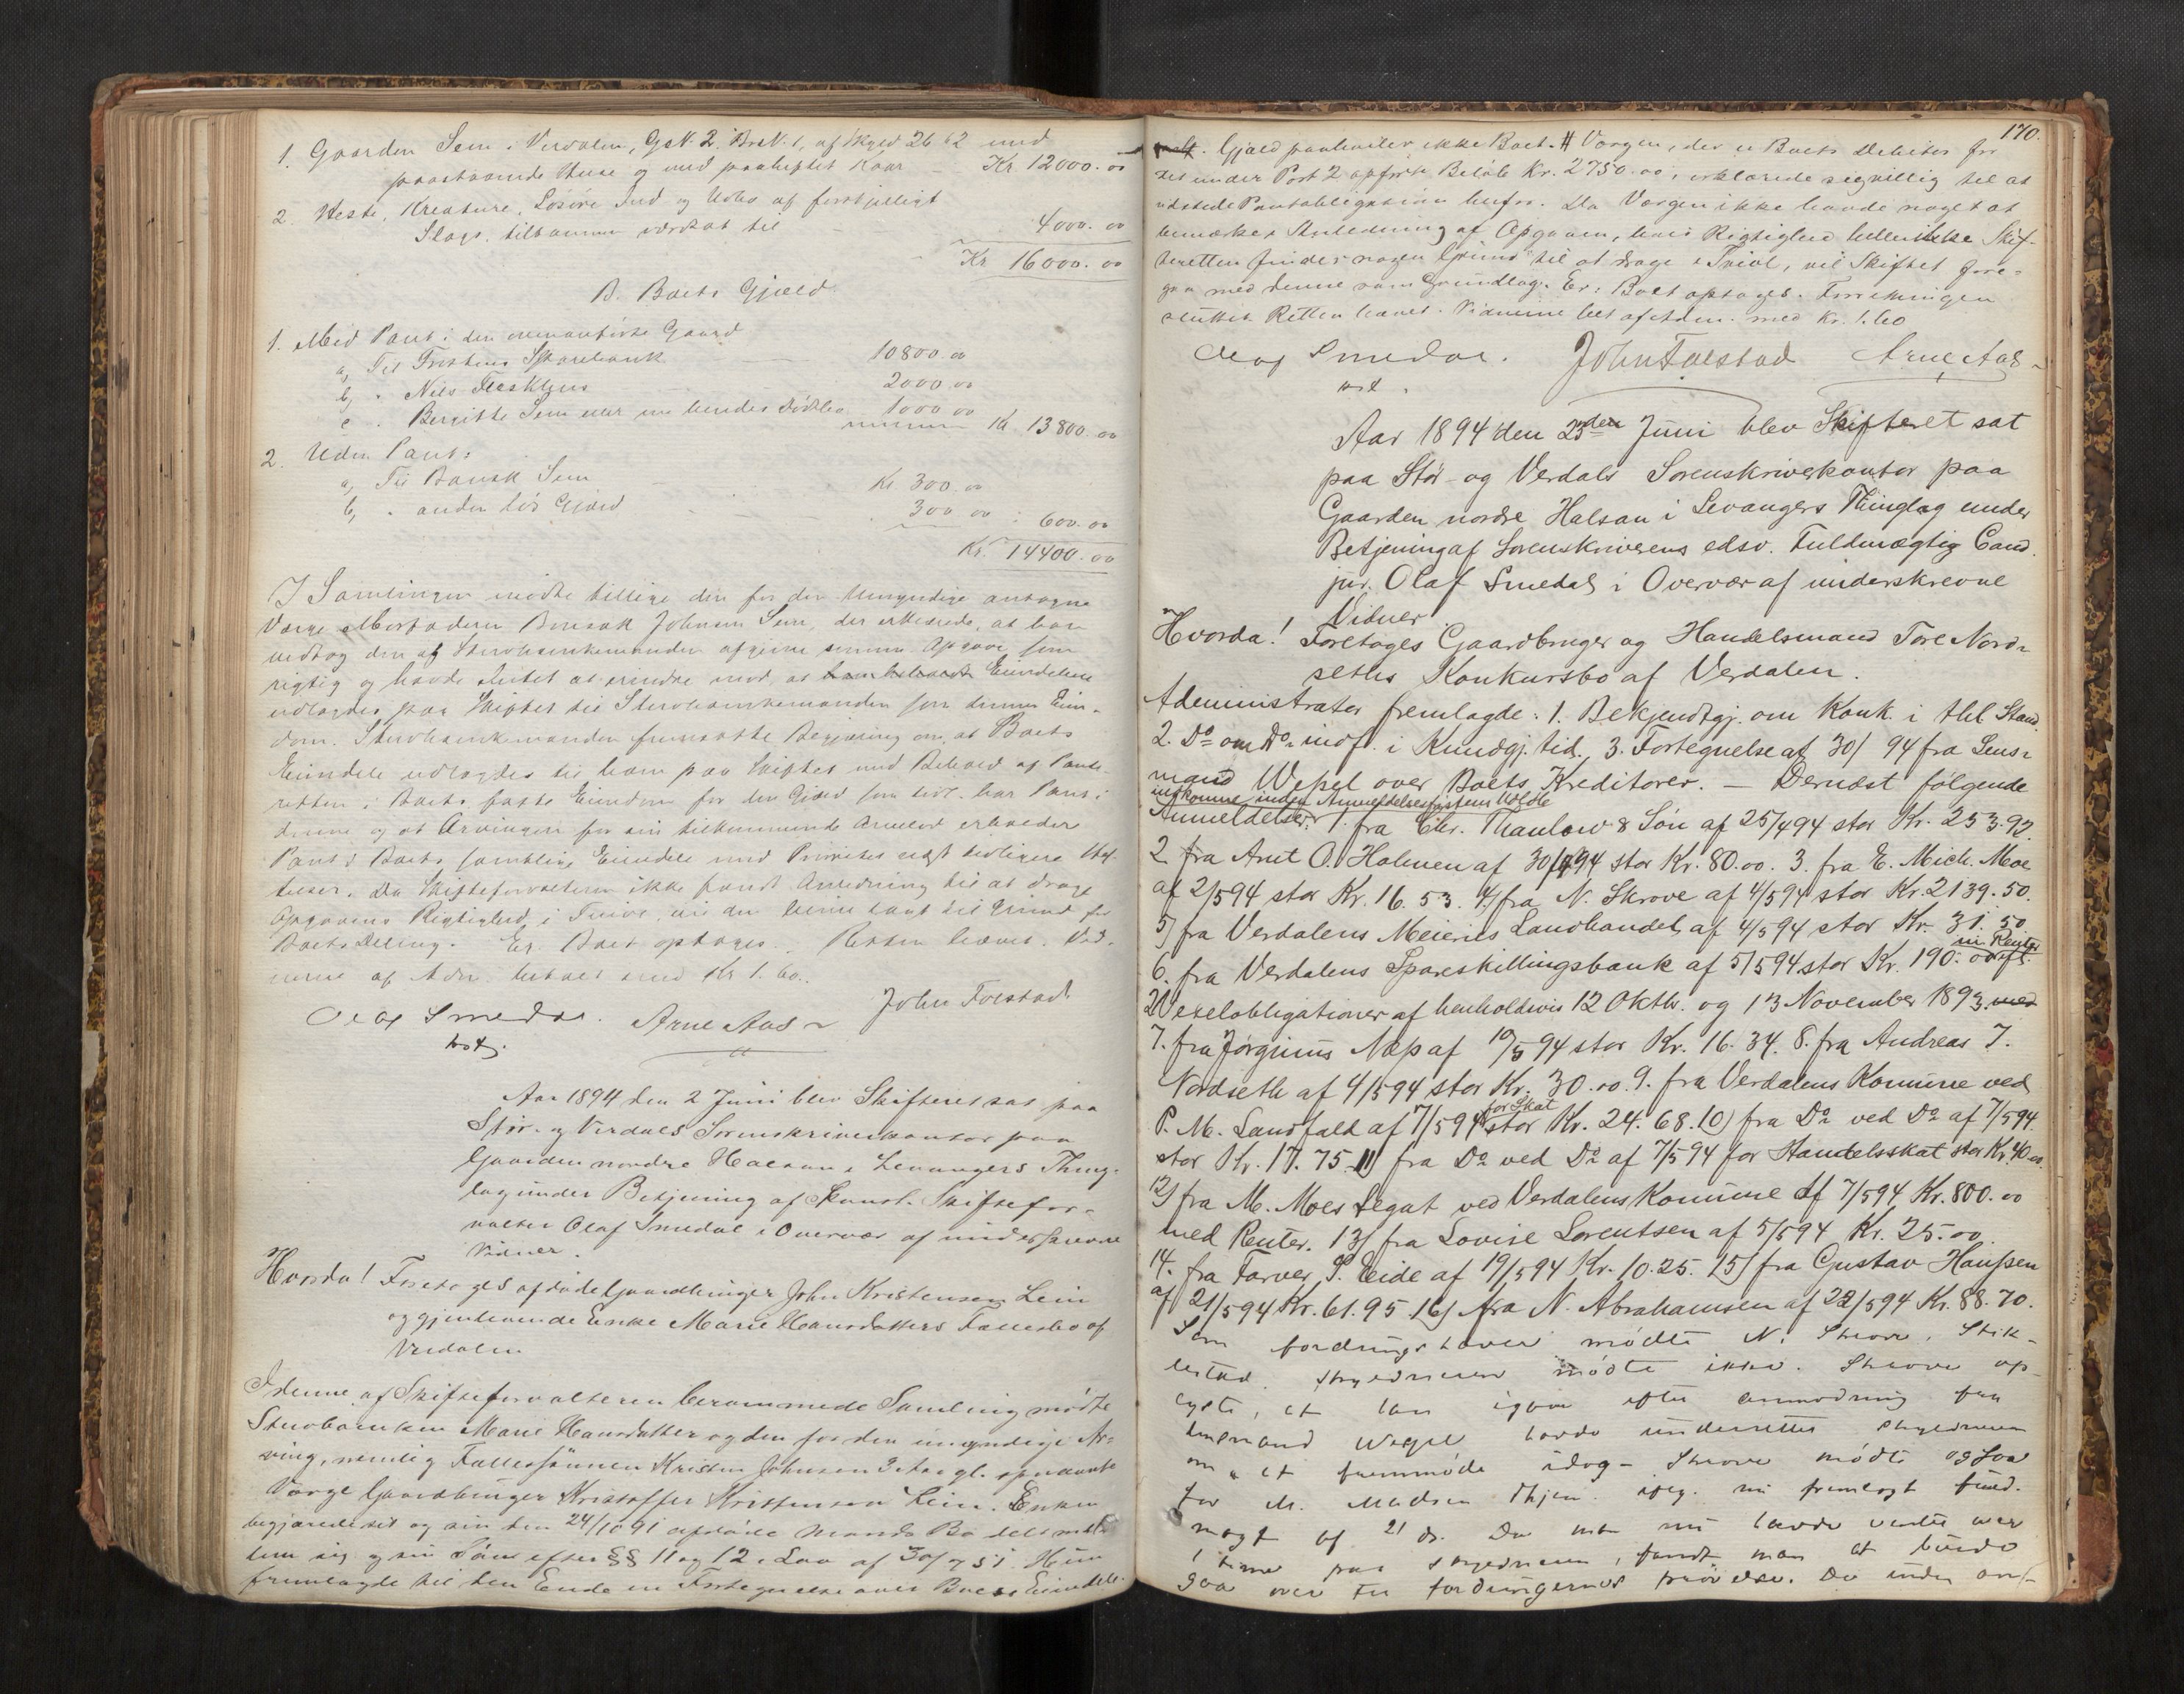 1. Gaarden Sem i Verdalen, GsN. 2. BrsN. 1, af Skyld 26 62 med
paastaaende Huse og med paaheftet Kaar - Kr 12000.00
2. Heste, Kreature, Løsøre Ind og Udbo af forskjelligt
Slags, tilsammen værdsat til 4000.00
Kr 16000.00
B. Boets Gjæld
1. Med Pant i den ovenanførte Gaard
a, Til Frostens Sparebank 10800.00
b, " Nils 2000.00
c " Bergitte Sem eller nu hendes Dødsbo 1000 00 Kr. 13800.00
2. Uden Pant:
a, Til Sem Kr. 300.00
b, " anden løs Gjæld 300 00 : 600.00
Kr. 14400.00
I Samlingen mødte tillige den for den Umyndige antagne
Værge Morfaderen Johnsen Sem, der erklærede, at han
vedtog den af Sterbøenkemanden afgivne Opgave som
rigtig og havde Intet at erindre mod, at Eiendelene
udlagdes paa Skiftet til Sterboenkemanden som dennes Eien-
dom. Sterboenkemanden fremsatte Begjæring om, at Boets
Eiendele udlagdes til ham paa Skiftet med Behold af Pante-
retten i Boets faste Eiendom for den Gjæld som har Pant i
denne og at Arvingen for sin tilkommende Arvelod erholder
Pant i Boets samtlige Eiendele med Prioritet næst tidligere Hef-
telser. Da Skifteforvalteren ikke fandt Anledning til at drage
Opgavens Rigtighed i Tvivl, vil den blive lagt til Grund for
Boets Deling. Er. Boet optages. Retten hævet. Vid-
nerne af Adm. betalt med Kr 1.60.
Olaf Smedal. Arne Aas John Folstad
kst.
Aar 1894 den 2 Juni blev Skifteret sat paa
Stør- og Verdals Sorenskriverkontor paa
Gaarden nordre Halsan i Levangers Thing-
lag under Betjening af Konst. Skiftefor-
valter Olaf Smedal i Overvær af underskrevne
Vidner.
Hvorda! Foretoges afdøde Gaardbruger John Kristensen Lein
og gjenlevende Enke Marie Hansdatters Fællesbo af
Verdalen
I denne af Skifteforvalteren berammede Samling mødte
Sterboenken Marie Hansdatter og den for den umyndige Ar-
ving, nemlig Fællessønnen Kristen Johnsen 3 Aar gl. opnævnte
Værge Gaardbruger Kristoffer Kristensen Lein. Enken
begjærede sit og sin den 24/10 91 afdøde Mands Bo delt mellem
hun sig og sin Søn efter §§ 11 og 12 i Lov af 30/7 51. Hun
fremlagde til den Ende en Fortegnelse over Boets Eiendele
170.
Gjæld paahviler ikke Boet. # Værgen, der er Boets Debitor for
det under Post 2 opførte Beløb Kr. 2750.00, erklærede sig villig til at
udstede Pantobligation herfor. Da Værgen ikke havde noget at
bemærke i Anledning af Opgaven, hvis Rigtighed heller ikke Skif-
teretten finder nogen Grund til at drage i Tvivl, vil Skiftet fore-
gaa med denne som Grundlag. Er: Boet optages. Forretningen
sluttet Retten hævet. Vidnerne bet af Adm. med Kr. 1.60
Olaf Smedal. John Folstad Arne Aas
kst.
Aar 1894 den 23den Juni blev Skifteret sat
paa Stør- og Verdals Sorenskriverkontor paa
Gaarden nordre Halsan i Levangers Thinglag under
Betjening af Sorenskriverens edsv. Fuldmægtig Cand.
jur. Olaf Smedal i Overvær af underskrevne
Vidner.
Hvorda! Foretoges Gaardbruger og Handelsmand Tore Nord-
seths Konkursbo af Verdalen.
Administrator fremlagde: 1. Bekjendtgj. om Konk. i thl. Stand.
2. Do om Do indf. i Kundgj. tid., 3. Fortegnelse af 30/ 94 fra Lens-
mand Wessel over Boets Kreditorer. — Dernæst følgende
indkomne inden Anmeldelsesfristens Udløb
Anmeldelser: 1. fra Chr. Thaulow & Søn af 25/494 stor Kr. 253.92.
2 fra Arnt O. Holmen af 30/494 stor Kr. 80.00. 3. fra E. Mich. Moe
af 2/594 stor Kr. 16.53. 4/ fra N. Skrove af 4/594 stor Kr. 2139.50.
5/ fra Verdalens Meieries Landhandel, af 4/594 stor Kr. 31.50
6. fra Verdalens Spareskillingsbank af 5/594 stor Kr. 190.00 m Renter ifl.
2 Vexelobligationer af henholdsvis 12 Oktbr. og 13 November 1893. med
7. fra Jørginus Næss af 10/5 94 stor Kr. 16.34. 8. fra Andreas J.
Nordseth af 4/594 stor Kr. 30.00. 9. fra Verdalens Komune ved
P. M. Landfald af 7/594 for Skat stor Kr. 24.68. 10) fra Do ved Do af 7/594.
stor Kr. 17.75. 11) fra Do ved Do af 7/594 for Handelsskat stor Kr. 40 00.
12) fra M. Moes Legat ved Verdalens Komune af 7/594 Kr. 800.00
med Renter. 13/ fra Lovise Lorentsen af 5/594 Kr. 25.00.
14. fra Farver P. Eide af 19/594 Kr. 10.25. 15) fra Gustav Hanssen
af 21/594 Kr. 61.95 16/ fra N. Abrahamsen af 22/594 Kr. 88.70.
Som fordringshaver mødte N. Skrove, Stik-
lestad. Skyldneren mødte ikke. Skrove op-
lyste, at han igaar efter anmodning fra
lensmand Wessel havde underrettet skyldneren
om at fremmøde idag. Skrove mødte ogsaa
for M. Madsen Thjem iflg. nu fremlagt fuld-
magt af 21 ds. Da man nu havde ventet over
1 time paa skyldneren, fandt man at burde
gaa over til fordringernes prøvelse. Da under an-